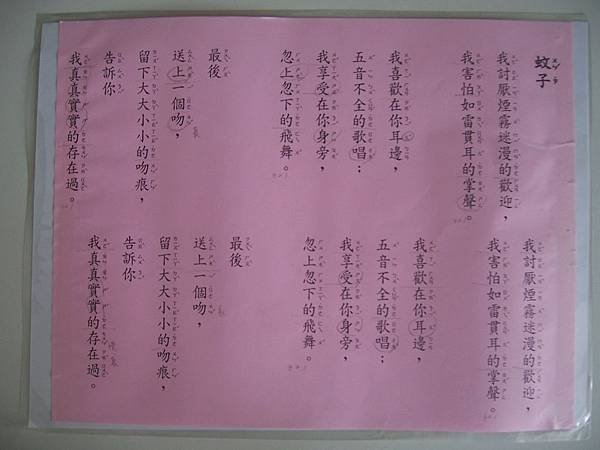 蚊子
我討厭煙霧迷漫的歡迎，
我害怕如雷貫耳的掌聲。
我喜歡在你耳邊，
五音不全的歌唱：
我享受在你身旁，
忽上忽下的飛舞。
最後
送上一個吻，
留下大大小小的吻痕，
告訴你
我真真實實的存在過。
我討厭煙霧迷漫的歡迎，
我害怕如雷貫耳的掌聲。
我喜歡在你耳邊，
五音不全的歌唱：
我享受在你身旁，
忽上忽下的飛舞。
最後
送上一個吻，
留下大大小小的吻痕，
告訴你
我真真實實的存在過。